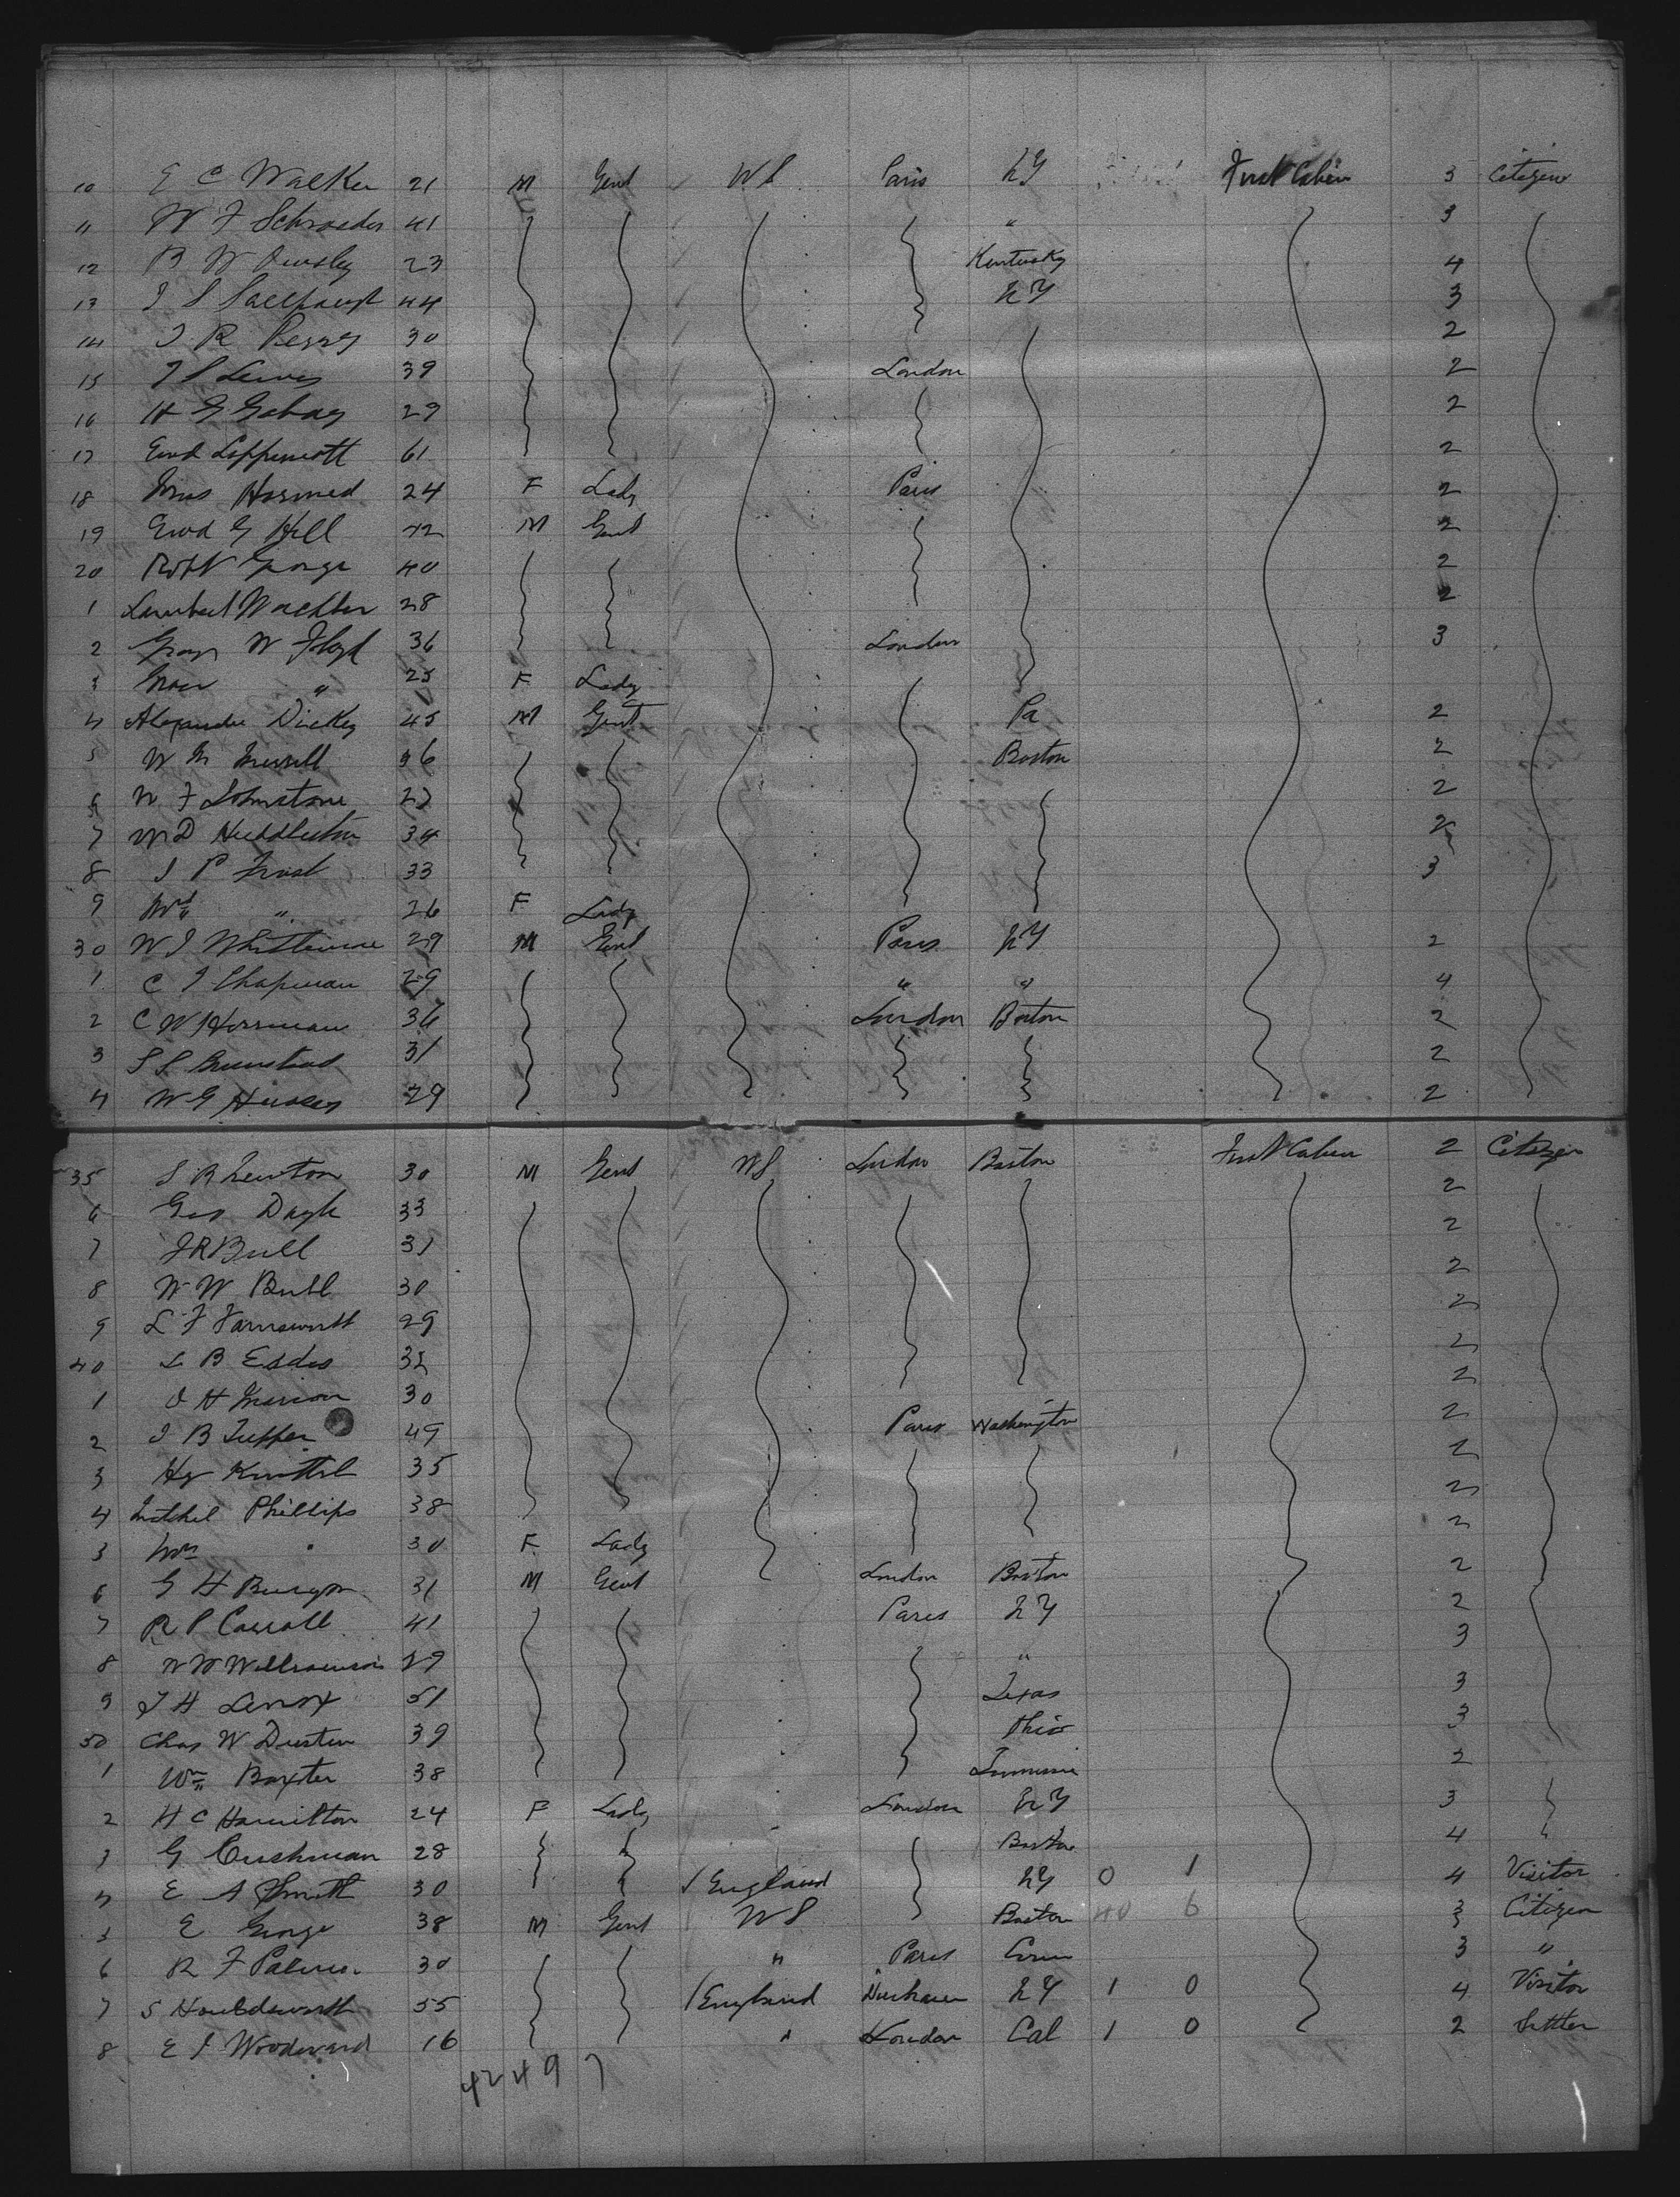 10 E C Walker 21 M Gent U S Paris N Y First Cabin 3 Citizen
11 W F Schroeder 41 " 3
12 B W Owsley 23 Kentucky 4
13 44 N Y 3
14 J R Perry 30 2
15 J S Lewis 39 London 2
16 H G Gabay 29 2
17 Ewd Lippincott 61 2
18 Harmed 24 F Lady Paris 2
19 Ewd G Hill 42 M Gent 2
20 Robt George 40 2
1 Lambert Wachter 28 2
2 W Floyd 36 London 3
3 " 25 F Lady
4 Alexander Dickey 45 M Gent Pa 2
5 W M Merrill 36 Boston 2
6 W F Johnstone 27 2
7 W D Huddleston 34 2
8 J P Frost 33 3
9 Mrs " 26 F Lady
30 W J Whittemore 29 M Gent Paris N Y 2
1 C J Chapman 29 " " 4
2 C W Horsman 36 London Boston 2
3 S S Bumstead 31 2
4 W G 29 2
35 S R Newton 30 M Gent U S London Boston First Cabin 2 Citizen
6 Geo Doyle 33 2
7 J R Bull 31 2
8 W W Bull 30 2
9 L F Farnsworth 29 2
40 L B Eddes 32 2
1 J H Marion 30 2
2 J B Tupper 49 Paris Washington 2
3 Hy Knittel 35 2
4 Mitchel Phillips 38 2
5 Mrs " 30 F Lady 2
6 G H Burgon 31 M Gent London Boston 2
7 R P Carroll 41 Paris N Y 2
8 W W Williamson 29 " 3
9 J H Lenox 51 Texas 3
50 Chas W Dustin 39 Ohio 3
1 Wm Baxter 38 2
2 H C Hamilton 24 F Lady London N Y 3
3 G Cushman 28 Boston 4
4 E A Smith 30 England N Y 0 1 4 Visitor
5 E George 38 M Gent U S Boston 40 6 3 Citizen
6 R F Palmer 30 " Paris Conn 3 "
7 S Houldsworth 55 England N Y 1 0 4 Visitor
8 E J Woodward 16 " London Cal 1 0 2 Settler
42497